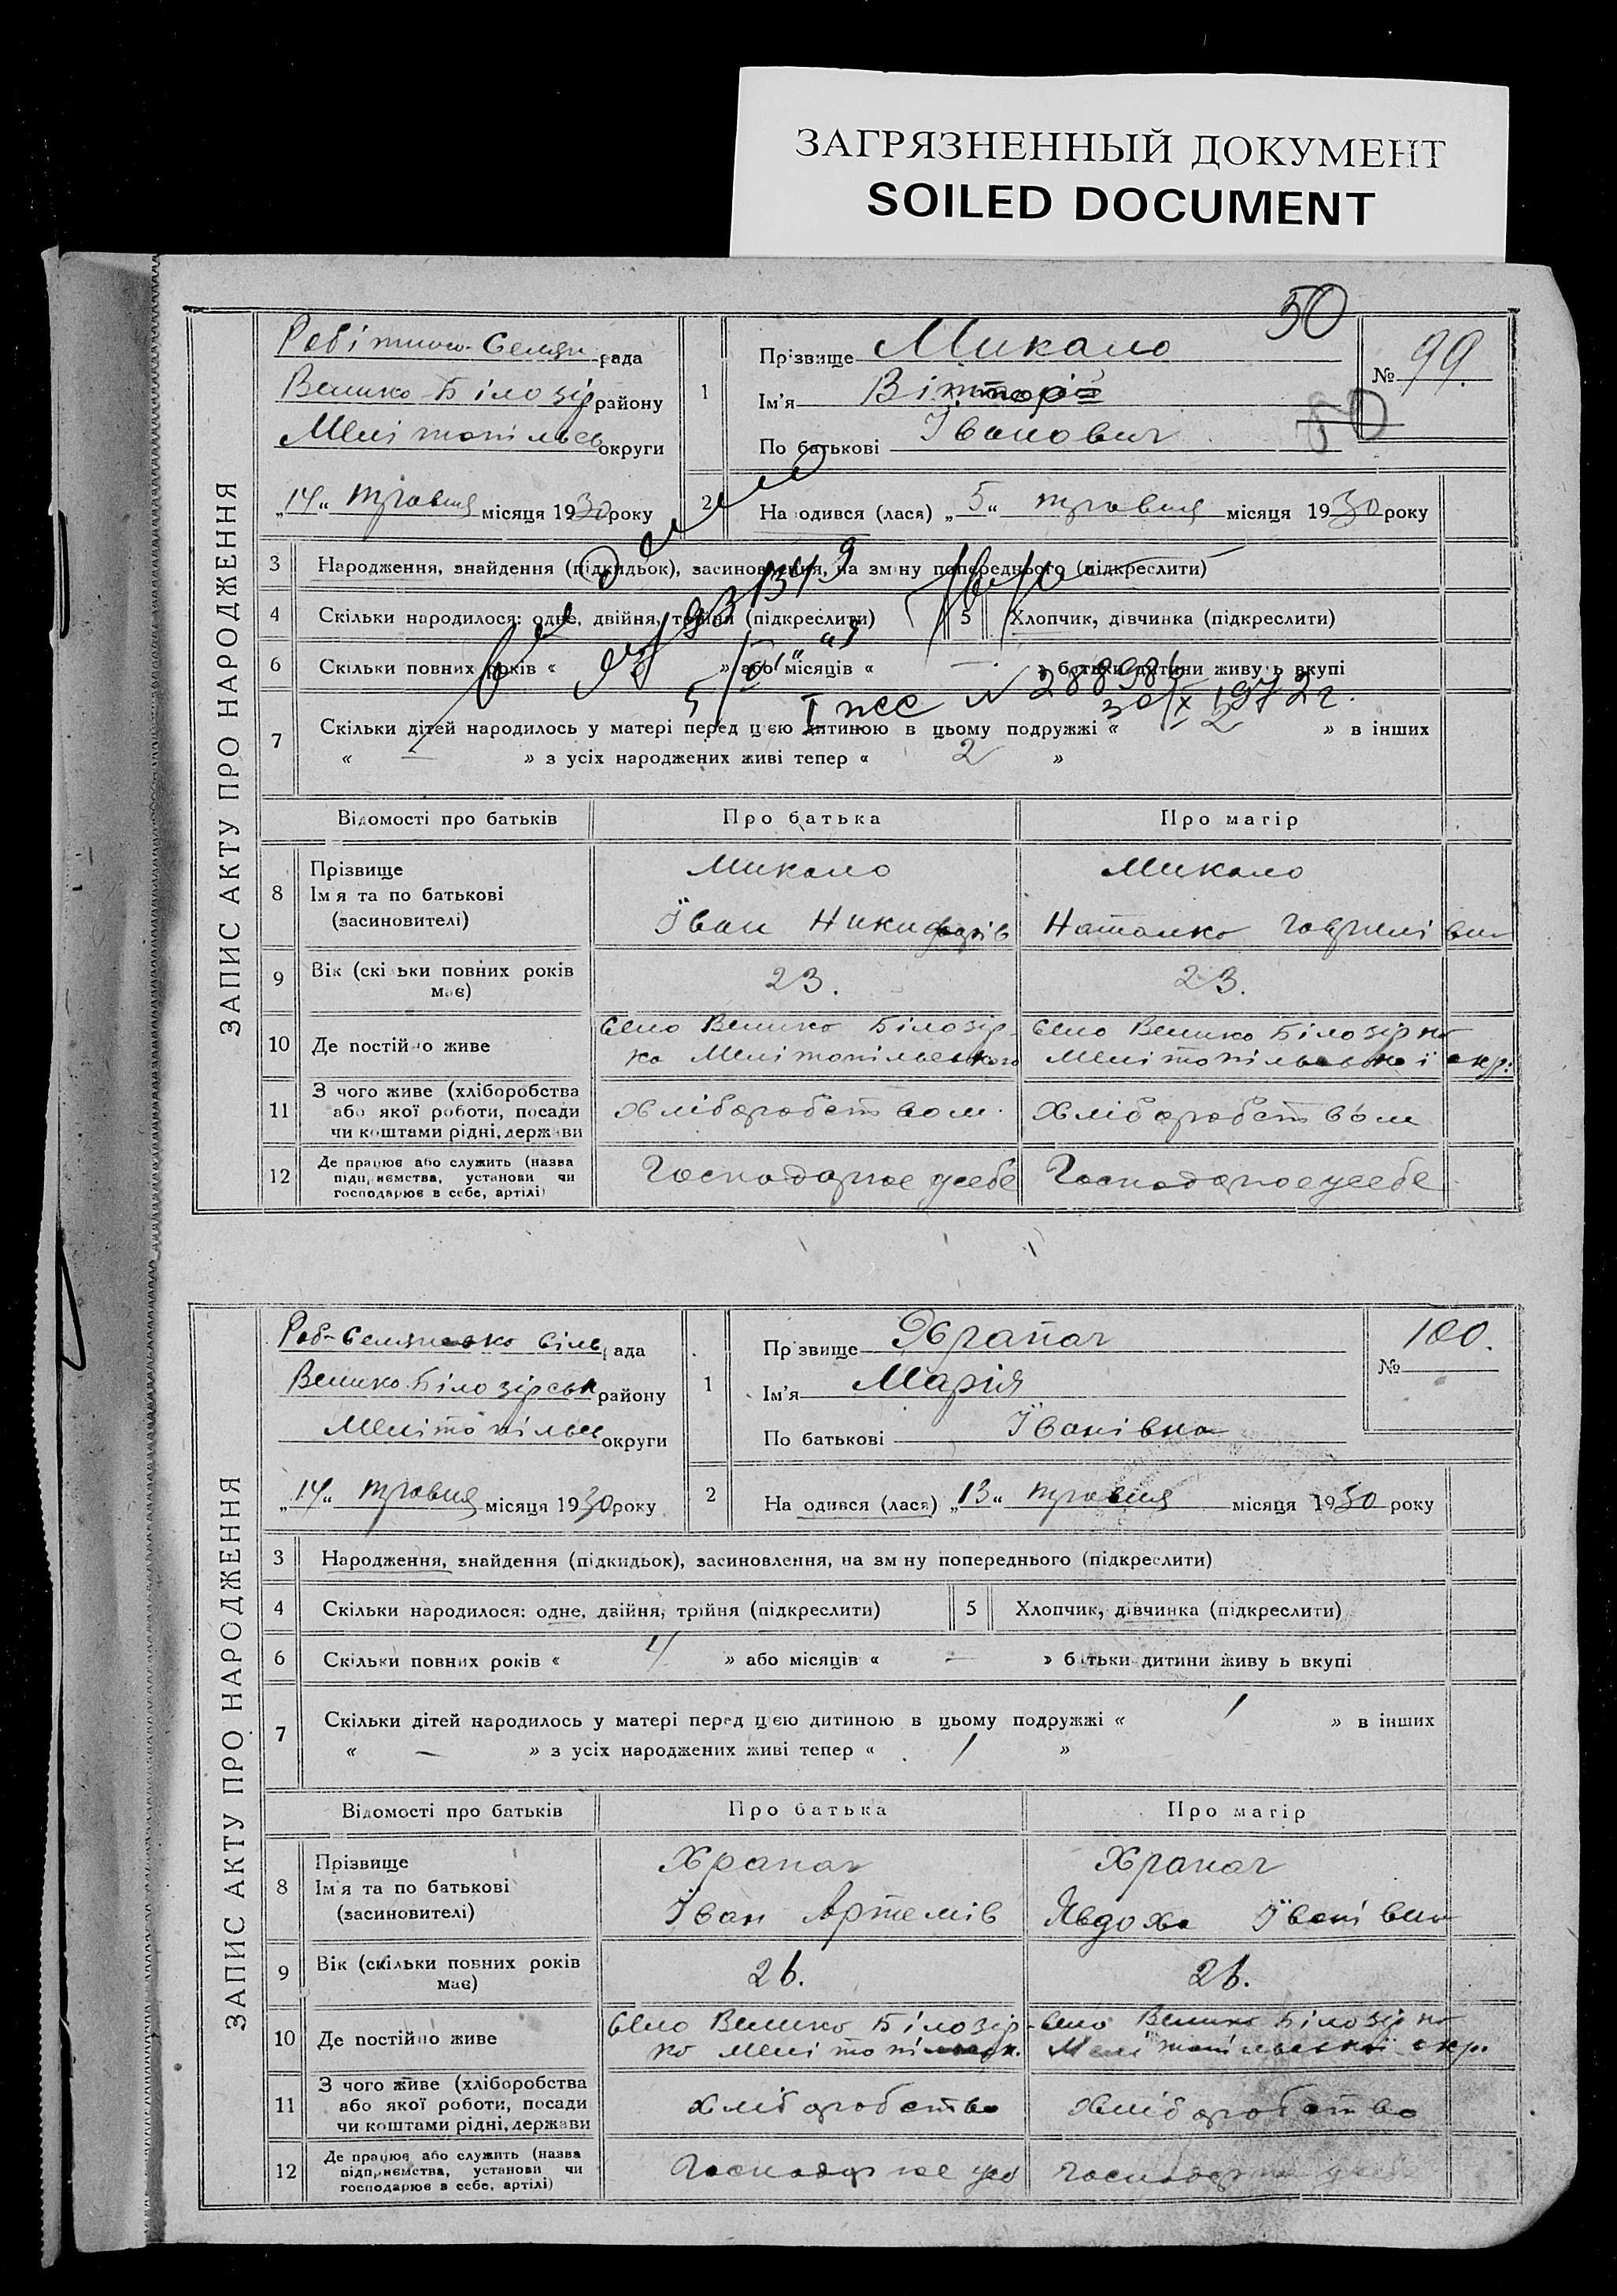 ЗАГРЯЗНЕННЫЙ ДОКУМЕНТ
SOILED DOCUMENT
50
ЗАПИС АКТУ ПРО НАРОДЖЕННЯ
Робітничо-Селян рада
Велико-Білозір району
Мелітопільсь округи
„14“ травня місяця 1930 року
1
Прізвище Микало
Ім'я Вікторій
По батькові Іванович
№ 99.
50
2
На одився (лася) „5“ травня місяця 1930 року
3 Народження, знайдення (підкидьок), засиновлення, на зм ну попереднього (підкреслити)
4 Скільки народилося: одне, двійня, трійня (підкреслити) 5 Хлопчик, дівчинка (підкреслити)
6 Скільки повних років « » або місяців « — » батьки дитини живу ь вкупі
I ЖС № 288984
30/X 1972 г.
7 Скільки дітей народилось у матері перед цією дитиною в цьому подружжі « 2 » в інших
« — » з усіх народжених живі тепер « 2 »
Відомості про батьків Про батька Про матір
8 Прізвище Микало Микало
Ім я та по батькові
(засновителі) Іван Никифорів Наталка Гаврилівна
9 Вік (скі ьки повних років має) 23. 23.
10 Де постійно живе Село Велико Білозір- Село Велико Білозірка
ка Мелітопільського Мелітопільської окр.
11 З чого живе (хліборобства
або якої роботи, посади хліборобством. хліборобством
чи коштами рідні, держави
12 Де працює або служить (назва
підприємства, установи чи Господарює у себе Господарює у себе
господарює в себе, артілі)
ЗАПИС АКТУ ПРО НАРОДЖЕННЯ
Роб-Селянсько Сіль ада
Велико-Білозірськ району
Мелітопільсь округи
„14“ травня місяця 1930 року
1
Пр звище Храпач
Ім'я Марія
По батькові Іванівна
№ 100.
2
На одився (лася) „13“ травня місяця 1930 року
3 Народження, знайдення (підкидьок), засиновлення, на зм ну попереднього (підкреслити)
4 Скільки народилося: одне, двійня, трійня (підкреслити) 5 Хлопчик, дівчинка (підкреслити)
6 Скільки повних років « 4 » або місяців « — » б тьки дитини живу ь вкупі
7 Скільки дітей народилось у матері перед цією дитиною в цьому подружжі « 1 » в інших
« — » з усіх народжених живі тепер « 1 »
Відомості про батьків Про батька Про матір
8 Прізвище Храпач Храпач
Ім'я та по батькові
(засиновителі) Іван Артемів Явдоха Іванівна
9 Вік (скільки повних років має) 26. 26.
10 Де постійно живе Село Велико Білозір- Село Велико Білозірка
ка Мелітопільськ. Мелітопільської окр.
11 З чого живе (хліборобства
або якої роботи, посади хліборобство хліборобство
чи коштами рідні, держави
12 Де працює або служить (назва
підприємства, установи чи Господарює усо Господарює у себе
господарює в себе, артілі)